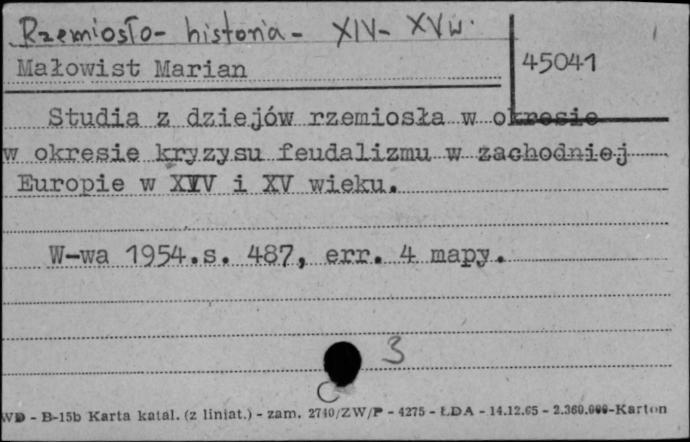 Rzemiosło - historia - XIV - XV w.
Małowist Marian
45041
Studia z dziejów rzemiosła w okresie
w okresie kryzysu feudalizmu w zachodniej
Europie w XIV i XV wieku.
W-wa 1954.s. 487, err. 4 mapy.
3
C
WD - B-15b Karta katal. (z liniat.) - zam. 2740/ZW/P - 4275 - ŁDA - 14.12.65 - 2.360.000-Karton